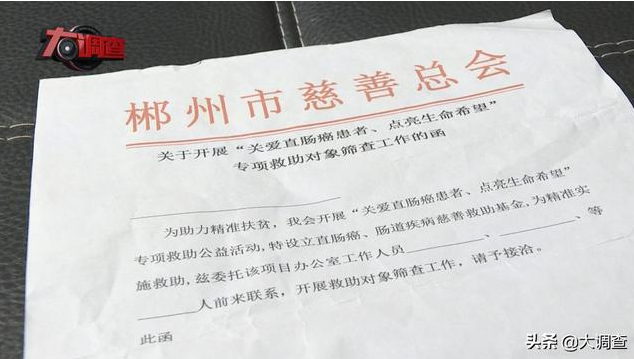 大调查
郴州市慈善总会
关于开展“关爱直肠癌患者、点亮生命希望”
专项救助对象筛查工作的函
为助力精准扶贫，我会开展“关爱直肠癌患者、点亮生命希望”
专项救助公益活动,特设立直肠癌、肠道疾病慈善救助基金,为精准实
施救助,兹委托该项目办公室工作人员________、________、等
______人前来联系，开展救助对象筛查工作，请予接洽。
此函
头条 @大调查